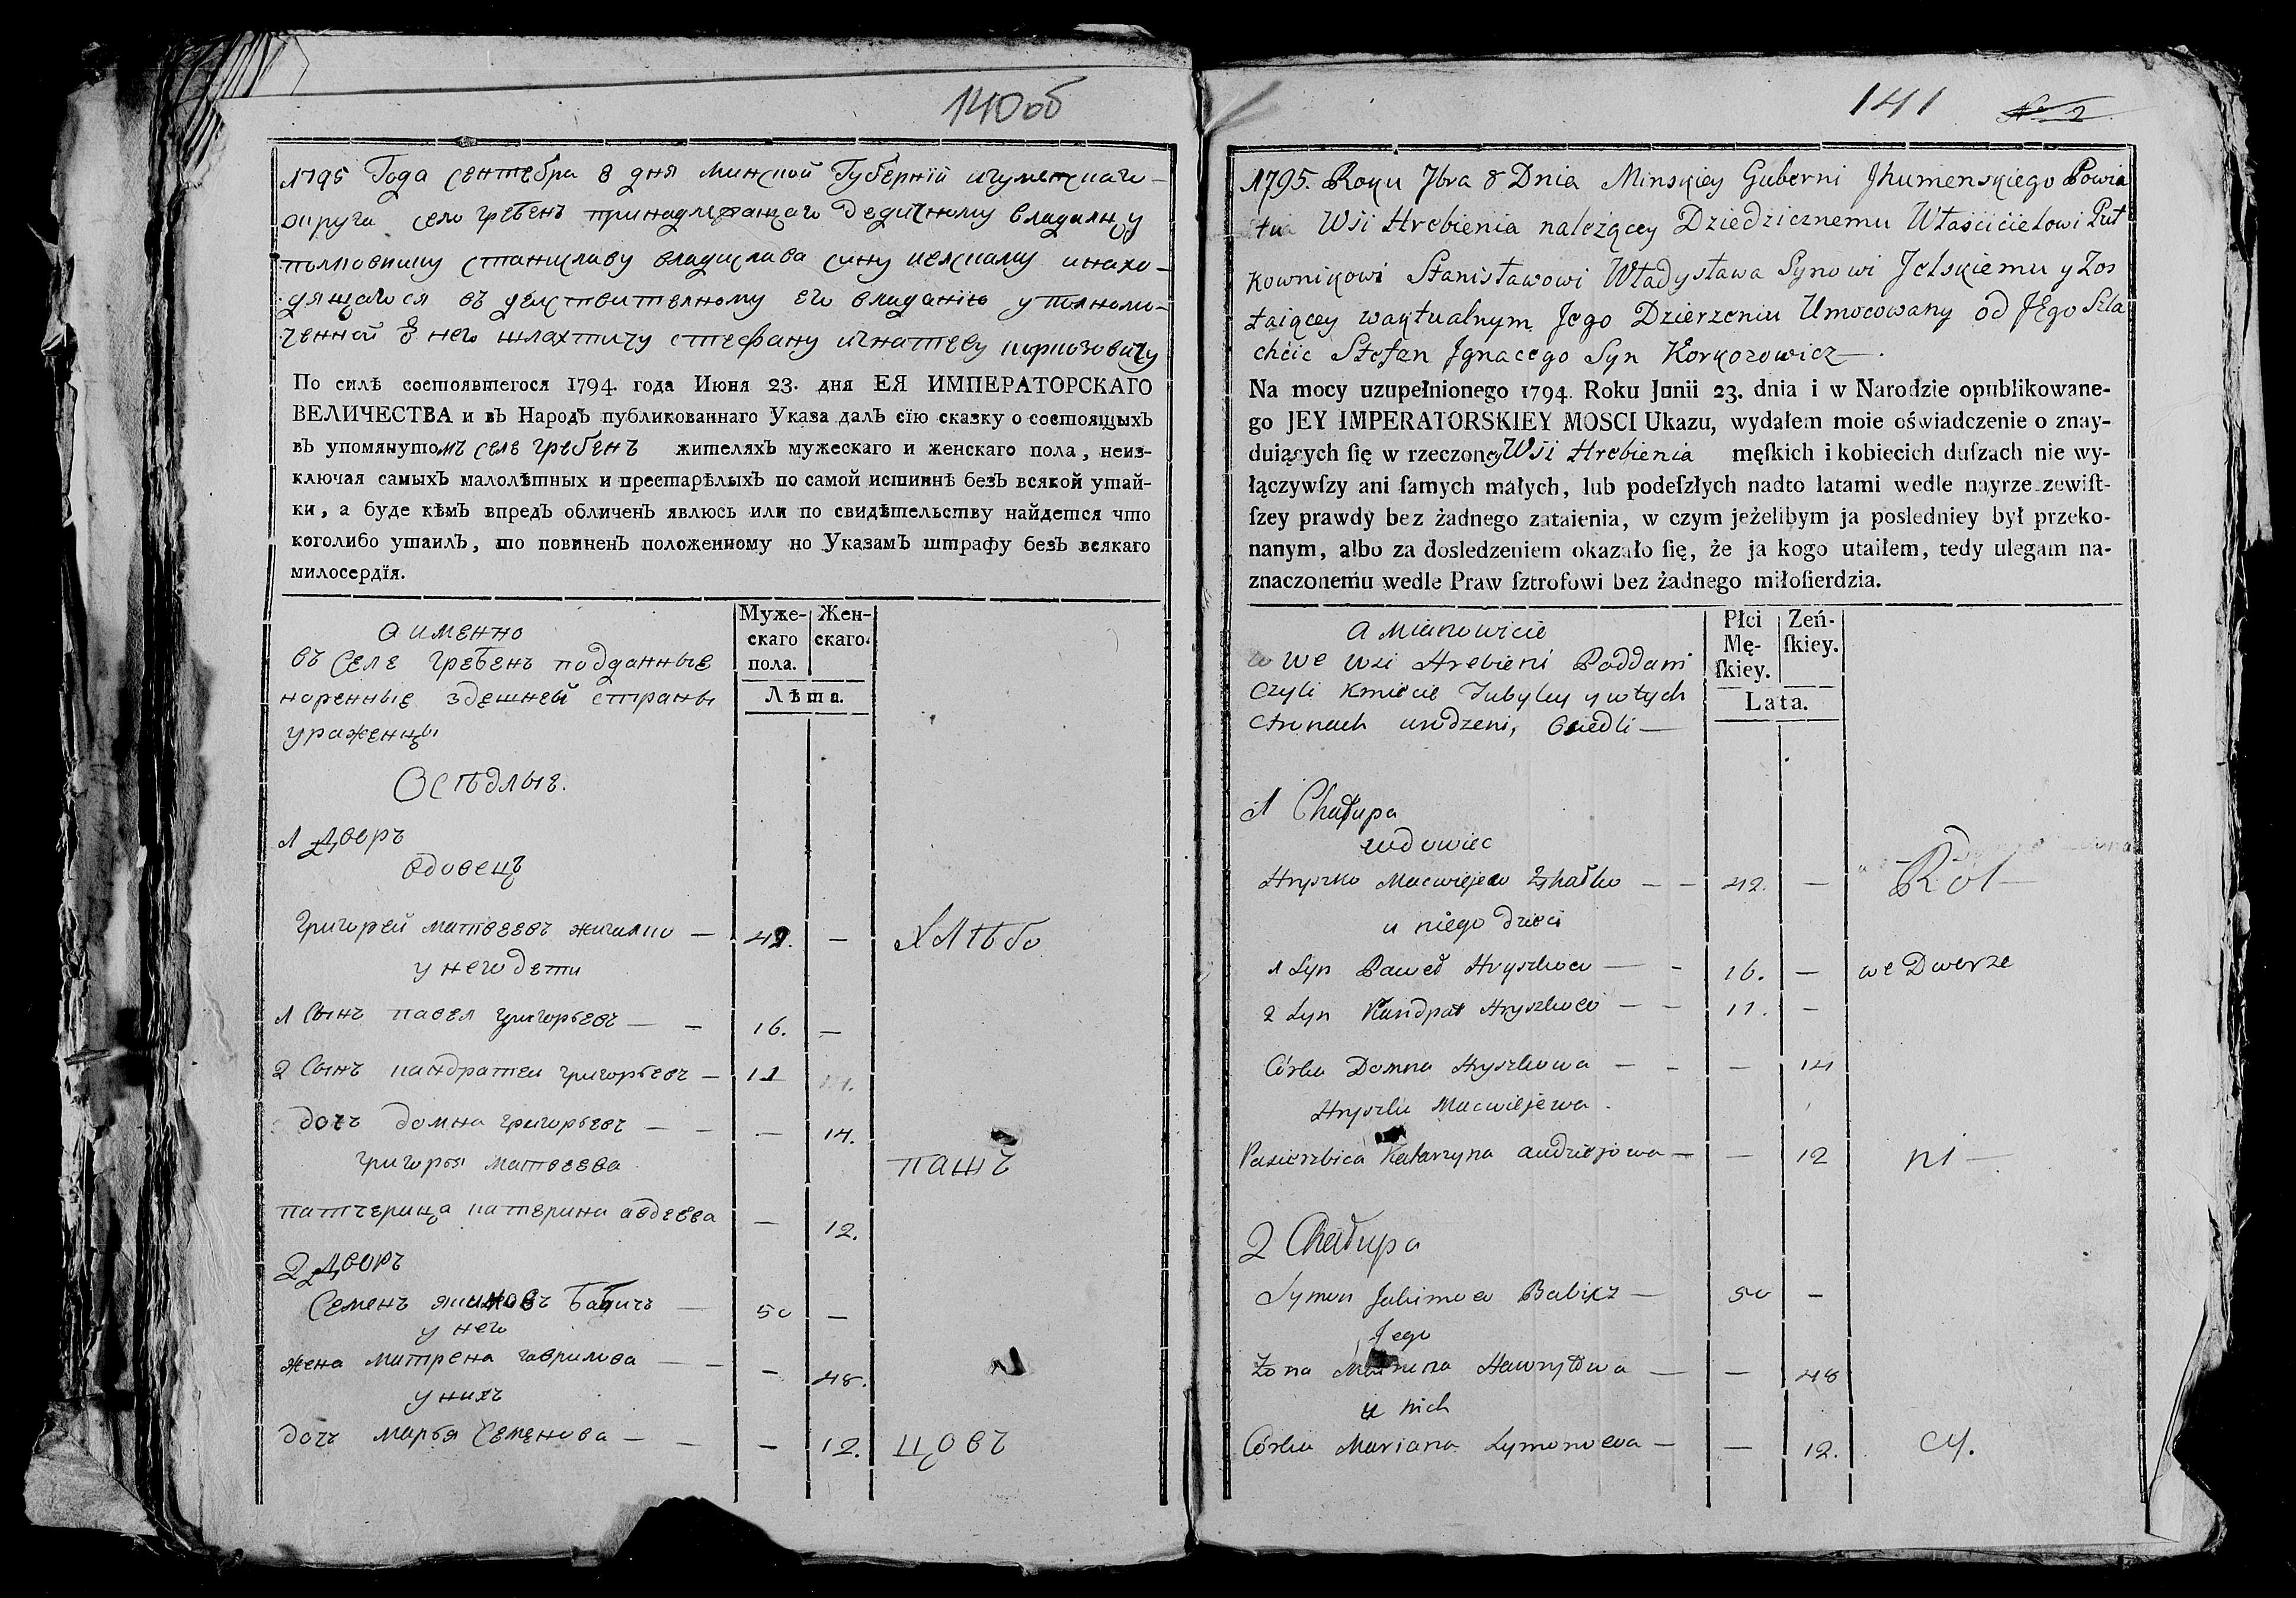 140об
1795 Года сентебра 8 дня минской Губернїи игуменскаго
округа село гребенъ принадлежащаго дедичному владелцу
полковнику станиславу владислава сину иелскаму инахо-
дящагося въ действителному его владанію уполномо-
ченной о него шляхтичу стефану игнатеву коркозовичу
По силѣ состоявшегося 1794. года Июня 23. дня ЕЯ ИМПЕРАТОРСКАГО
ВЕЛИЧЕСТВА и въ Народъ публикованнаго Указа далъ сїю сказку о состоящыхъ
въ упомянутомъ селе гребенъ жителяхъ мужескаго и женскаго пола, неиз-
ключая самыхъ малолѣтных и престарѣлыхъ по самой истиннѣ безъ всякой утай-
ки, а буде кѣмъ впредъ обличенъ явлюсь или по свидѣтельству найдется что
коголибо утаилъ, то повиненъ положенному но Указамъ штрафу безъ всякаго
милосердїя.
Муже-
скаго
пола.
Жен-
скаго.
Лѣта.
а именно
въ Селе гребенъ подданные
коренные здешней страны
ураженцы
Осѣдлые.
1 Дворъ
вдовецъ
Григорей матвеевъ жигалко — 42. — Хлѣбо
у него дети
1 Сынъ павел григорьевъ — — 16. —
2 Сынъ кандратеи григорьевъ — 11
дочъ домна григорьевъ — — — 14.
григорья матвеева пашъ
патчерица катерина авдеева — 12.
2 Дворъ
Семенъ якимовъ бабичъ — 50 —
у него
жена матрена гаврилова — — — 48.
у нихъ
дочъ марья Семенова — — — 12. цовъ
141 № 2
1795. Roku 7bra 8 Dnia Minskiey Guberni Jhumenskiego Powia
tu Wśi Hrebienia należącey Dziedzicznemu Właściciełowi Puł
kownikowi Stanisławowi Władysława Synowi Jelskiemu y Zos
taiącey waktualnym Jego Dzierzeniu Umocowany od JEgo Szla
chcic Stefan Jgnacego Syn Korkozowicz —.
Na mocy uzupełnionego 1794. Roku Junii 23. dnia i w Narodzie opublikowane-
go JEY IMPERATORSKIEY MOSCI Ukazu, wydałem moie oświadczenie o znay-
duiących ſię w rzeczoney Wśi Hrebienia męſkich i kobiecich duſzach nie wy-
łączywſzy ani ſamych małych, lub podeſzłych nadto latami wedle nayrzeczewiſt-
ſzey prawdy bez żadnego zataienia, w czym jeżelibym ja posledniey był przeko-
nanym, albo za dosledzeniem okazało ſię, że ja kogo utaiłem, tedy ulegam na-
znaczonemu wedle Praw ſztrofowi bez żadnego miłoſierdzia.
Płci
Mę-
ſkiey.
Zeń-
ſkiey.
Lata.
a Mianowicie
we wsi Hrebieni Poddani
czyli kmiecie Tubylcy y wtych
stronach urodzeni, Osiedli —
1 Chałupa
wdowiec
Hryszko Maciejew Zyhałko — — 42. — Rol—
u niego dzieci
1 Syn Paweł Hryszkow — — 16. — we Dworze
2 Syn Kandrat Hryszkow — — 11. —
Córka Domna Hryszkowa — — — 14
Hryszki Macwiejewa.
Pasierzbica Katarzyna audziejowa — — 12 ni —
2 Chałupa
Symon Jakimow Babicz — 50 —
Jego
Żona Matruna Hawryłowa — — 48
u nich
Córka Mariana Symonowa — — 12. cy.